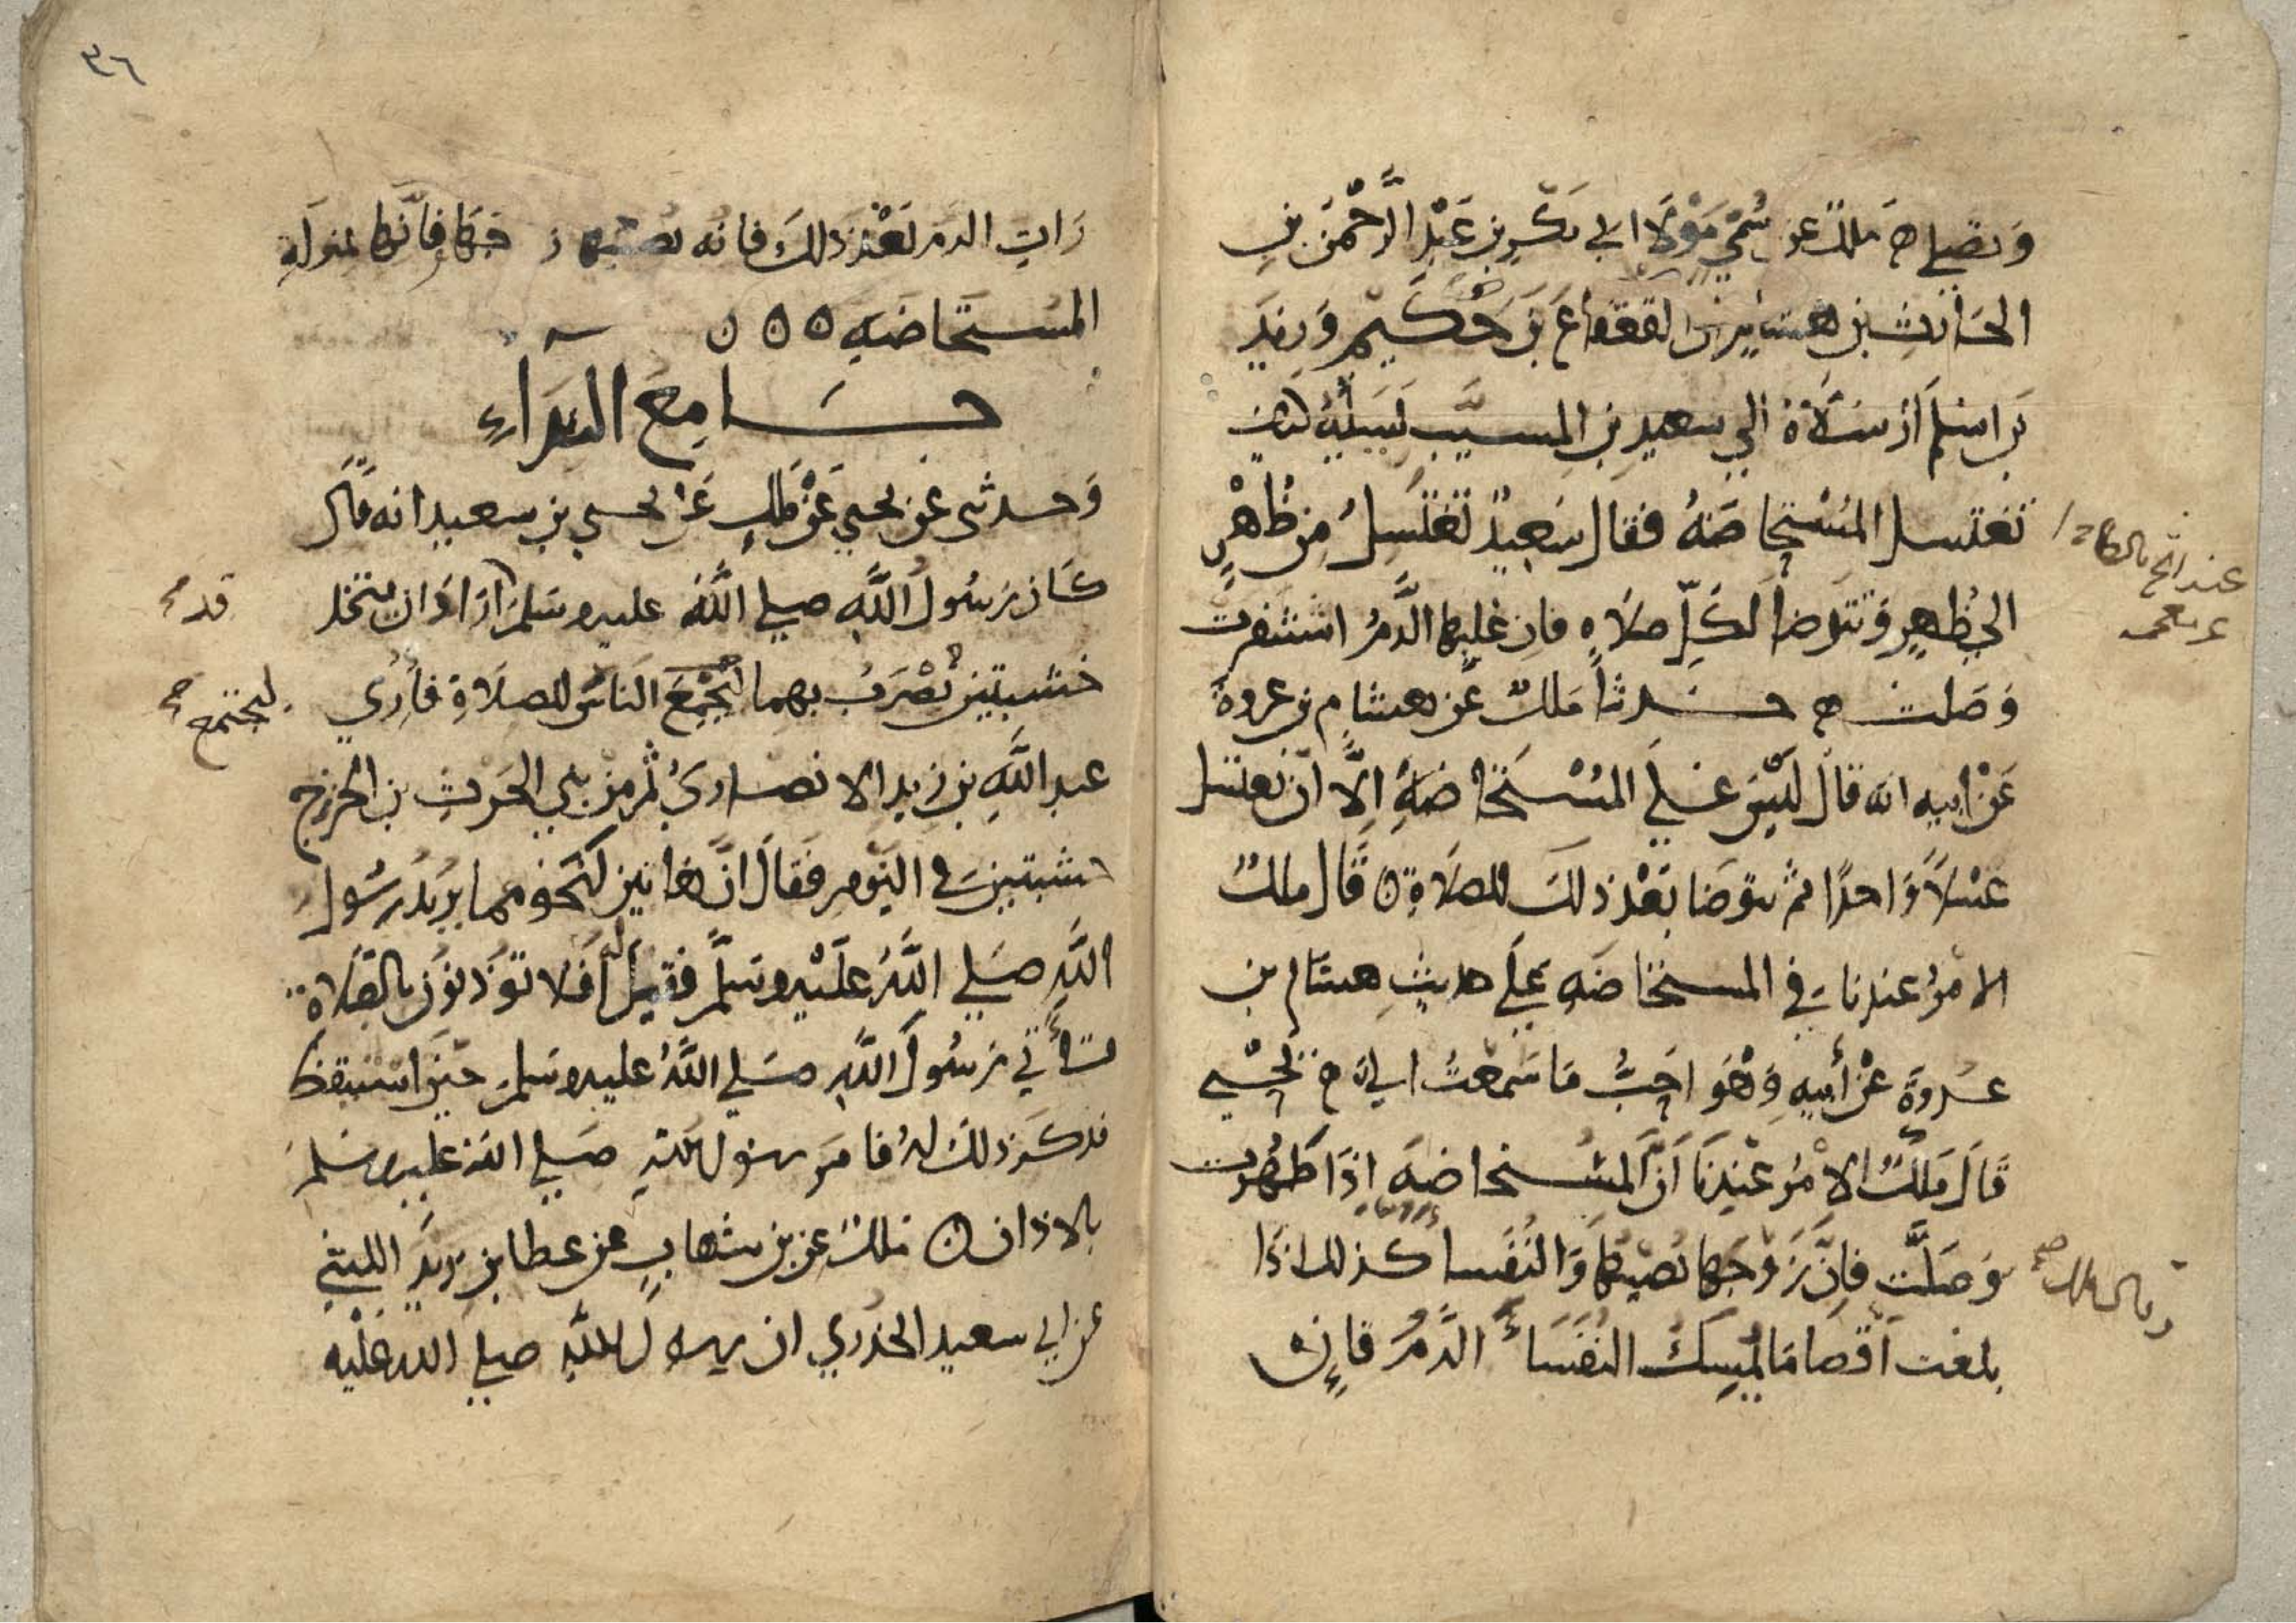 وتصلي ح ملك عن سُمَيٍّ مَوْلَا ابي بكر بن عَبْدِ الرَّحْمن بن
الحارث بن هشام ان القعقاع بن حكيم وزيد
بن اسلم ارسلاه الي سعيد بن المسيب ليسئله كيف
تغتسل المُسْتحاضَةُ فقال سَعِيدٌ تَغْتَسِلُ مِن ظُهْرٍ
الي ظهرٍ وتتوضأ لكلّ صلاةٍ فان غلبها الدَّمُ استثفرت
وَصلت ح حدثنا مَلكٌ عن هشام بن عروةَ
عَنْ ابيه انه قال ليْسَ عَلي المُسْتَحَاضَةِ اِلَّا ان تغتسل
غسْلاً وَاحدًا ثم تتوضا بَعْد ذلكَ للصلاةِ ن قَال ملكٌ
الامرُ عندنا في المستحاضَةِ عَلي حديثِ هشام بن
عُروةَ عنْ أبيهِ وَهْوَ احَبُّ مَا سَمعْتُ اليَّ ح يحْيي
قَالَ مَلكٌ الامْرُ عِنْدنَا اَنَّ المُستحاضةَ اِذَا طَهُرت
وَصَلَّتِ فاِنَّ زَوْجَهَا يُصيبُهَا وَالنُفَسا كذلك اذَا
بلغت اَقْصا مَا يُمْسِكُ النُفَسَاءَ الدَّمُ فاِن
عند
٣٦
رَاتِ الدمَ بَعْد ذلكَ فانه يصيبها زوجُهَا فاِنَّها بمنزلةِ
المُستَحَاضَةِ ه ه ن
جَامِعُ النِّدَآءِ
وَحدثني عَن يحيي عَنْ مَالكٍ عَن يحيي بن سعيد انه قَال
كَان رَسُولُ اللَّهِ صلي اللَّهُ عليه وسَلم اَرَادَ ان يتخذ
قد
خشبتين يُضْرَبُ بهما ليُجْمَعَ الناسُ للصلاةِ فأُرِي
ليجتمع
عبد اللَّهِ بن زيد الانصاريُ ثم من بني الحَرثِ بن الخزرج
خشبتين في النَوْمِ فَقَالَ اِنَّ هَاتين لَنَحْو مما يُريدُ رسُول
اللَّهِ صَلي اللَّهُ عَلَيْهِ وسَلم فقيلَ أَفَلا تؤذنون بالصَلاةِ
فأتي رَسُولَ اللَّهِ صَلي اللَّهُ عليه وسَلم حينَ استيقظَ
فذكر ذلكَ لهُ فامر رسُول اللهِ صَلي اللهُ عليه وسلم
بالاذان ن ملكٌ عن بن شهابٍ عن عطا بن يزيدَ الليثي
عن ابي سعيد الخدْري ان رسول اللهِ صلي الله عَليْه